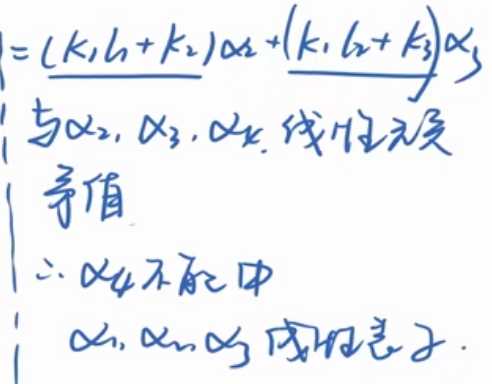 =(k₁l₁+k₂)α₂+(k₁l₂+k₃)α₃
与α₂,α₃,α₄.线性无关
矛值
∴α₄不能由
α₁,α₂,α₃线性表子.